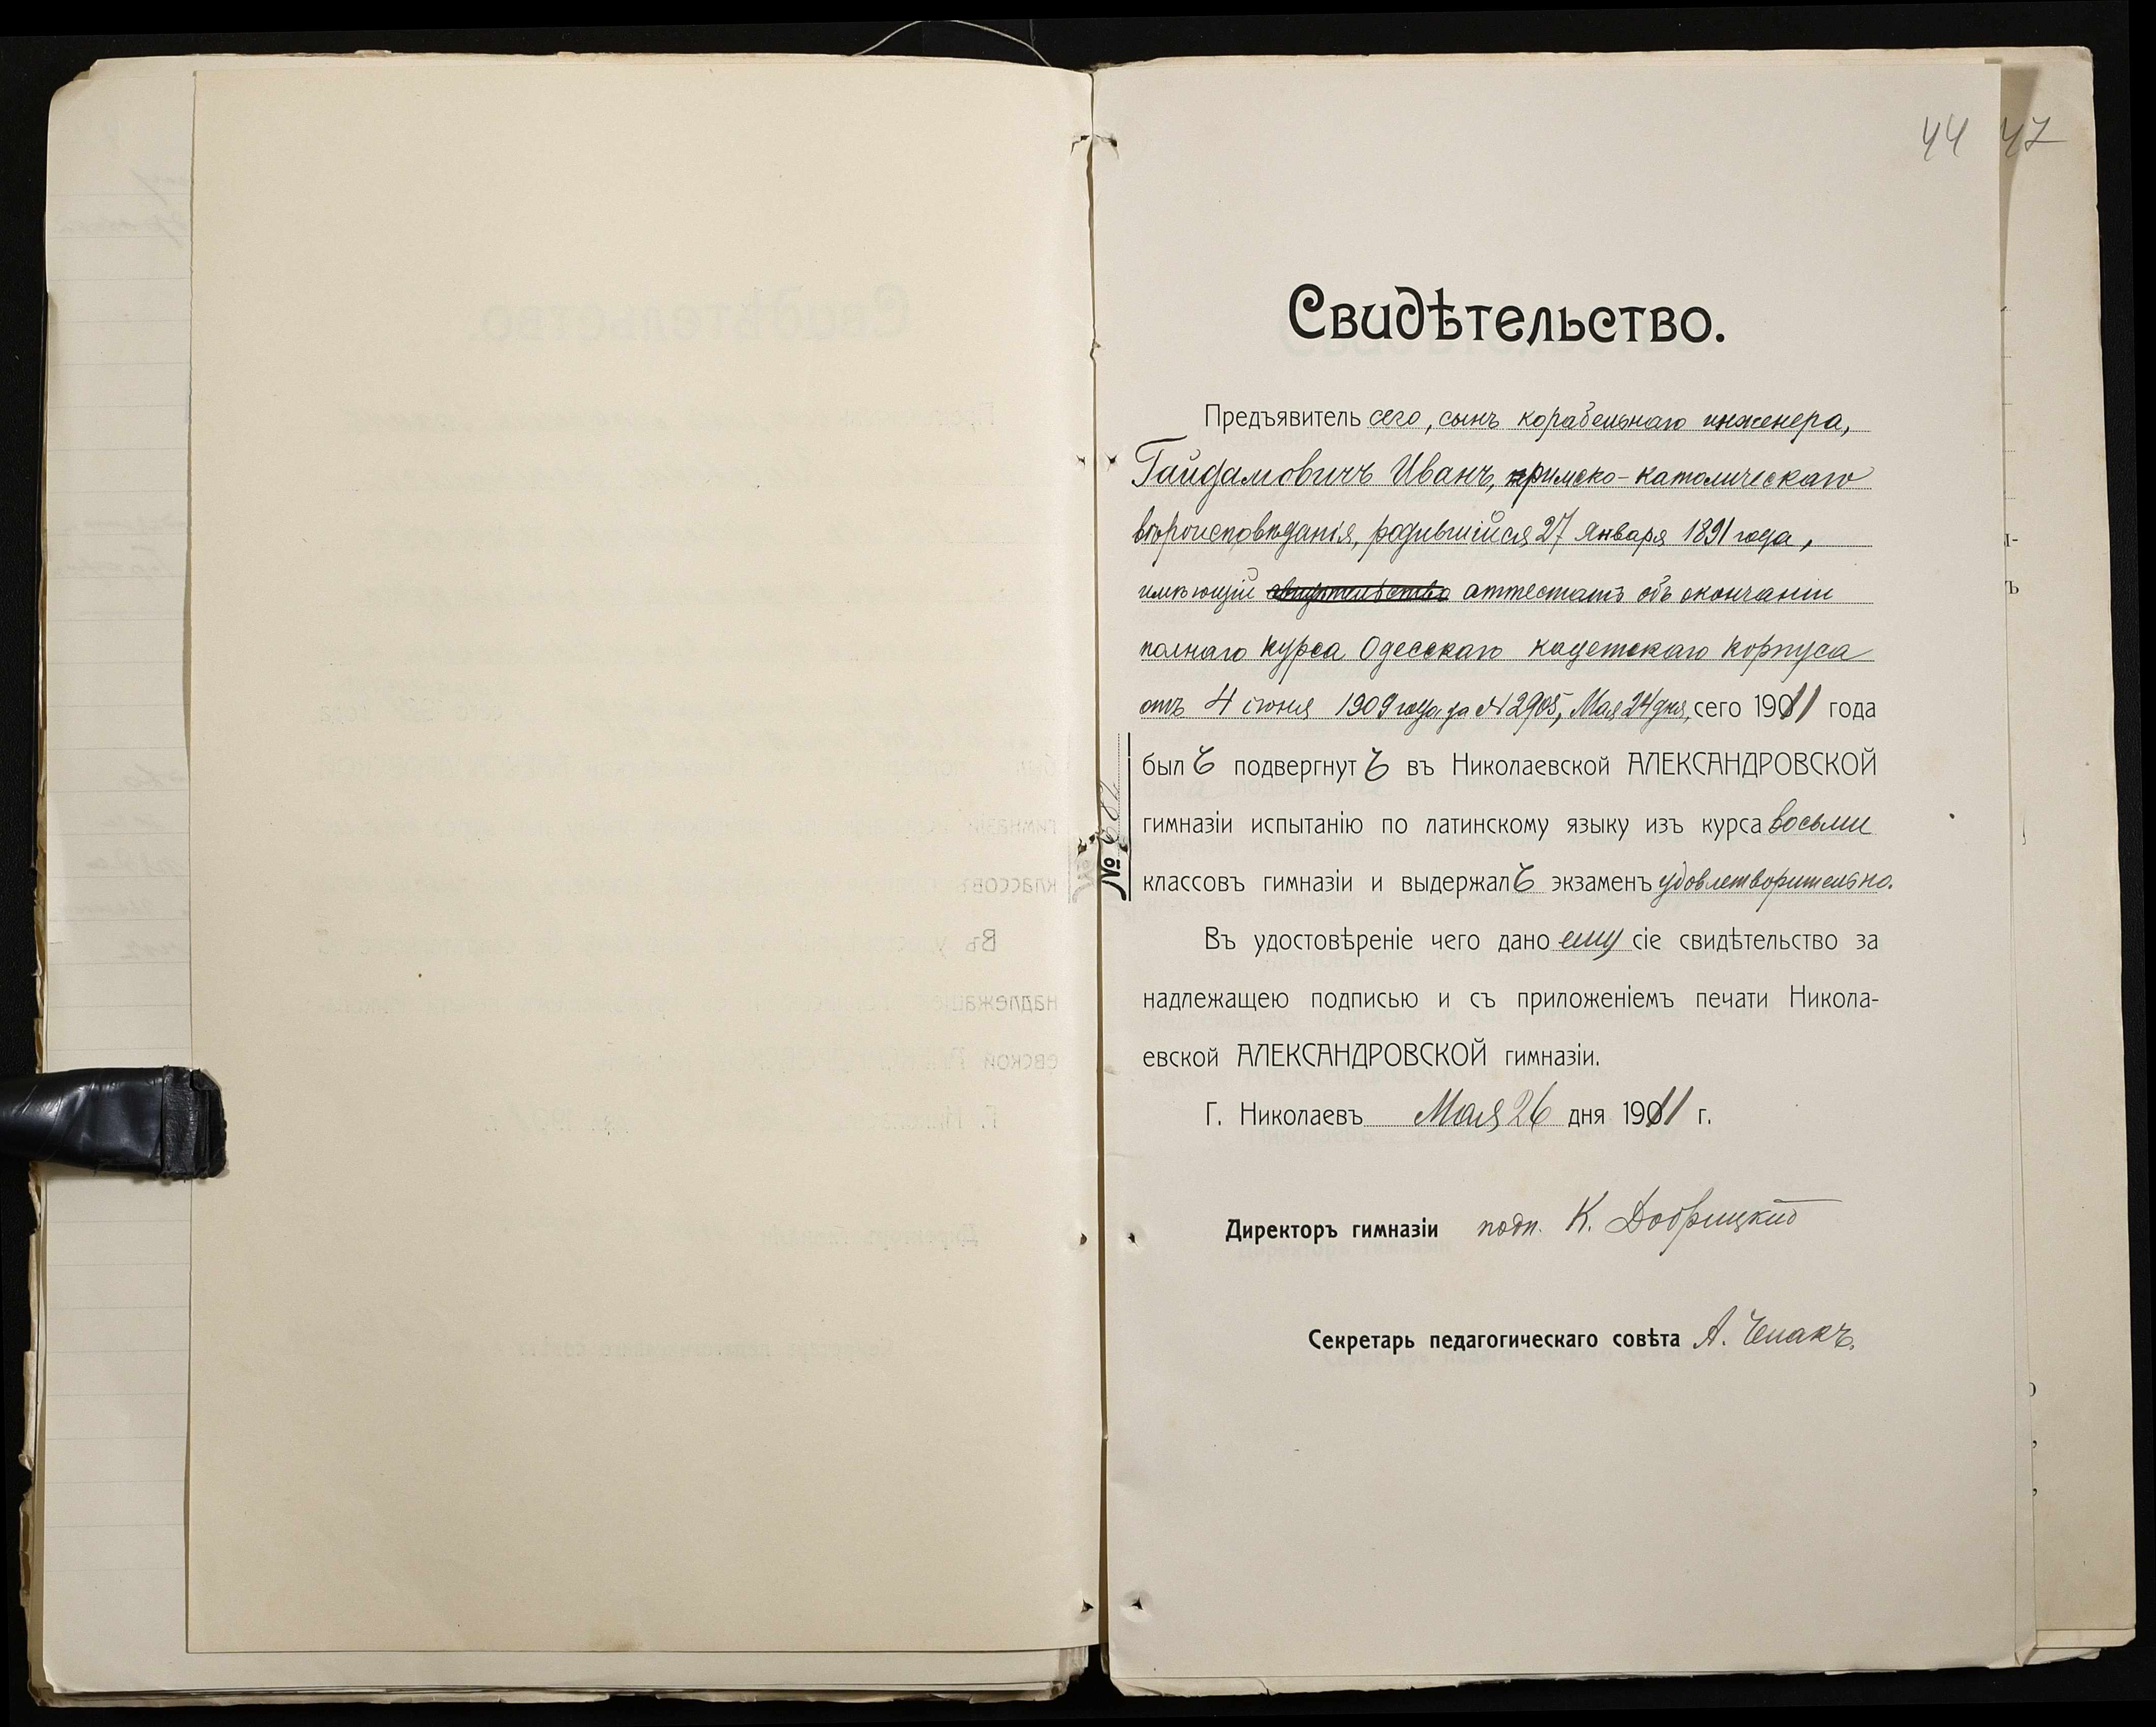 44 47
Свидѣтельство.
Предъявитель сего, сынъ корабельнаго инженера,
Гайдамовичъ Иванъ, римско-католическаго
вѣроисповѣданія, родившійся 27 Января 1891 года,
имѣющій свидѣтельство аттестатъ объ окончаніи
полнаго курса Одесскаго кадетскаго корпуса
отъ 4 іюня 1909 года за № 2905, Мая 24 дня, сего 1911 года
былъ подвергнутъ въ Николаевской АЛЕКСАНДРОВСКОЙ
гимназіи испытанію по латинскому языку изъ курса восьми
классовъ гимназіи и выдержалъ экзаменъ удовлетворительно.
Въ удостовѣреніе чего дано ему сіе свидѣтельство за
надлежащею подписью и съ приложеніемъ печати Никола-
евской АЛЕКСАНДРОВСКОЙ гимназіи.
Г. Николаевъ Мая 26 дня 1911 г.
Директоръ гимназіи подп. К. Добрицкій
Секретарь педагогическаго совѣта А.
№ 682